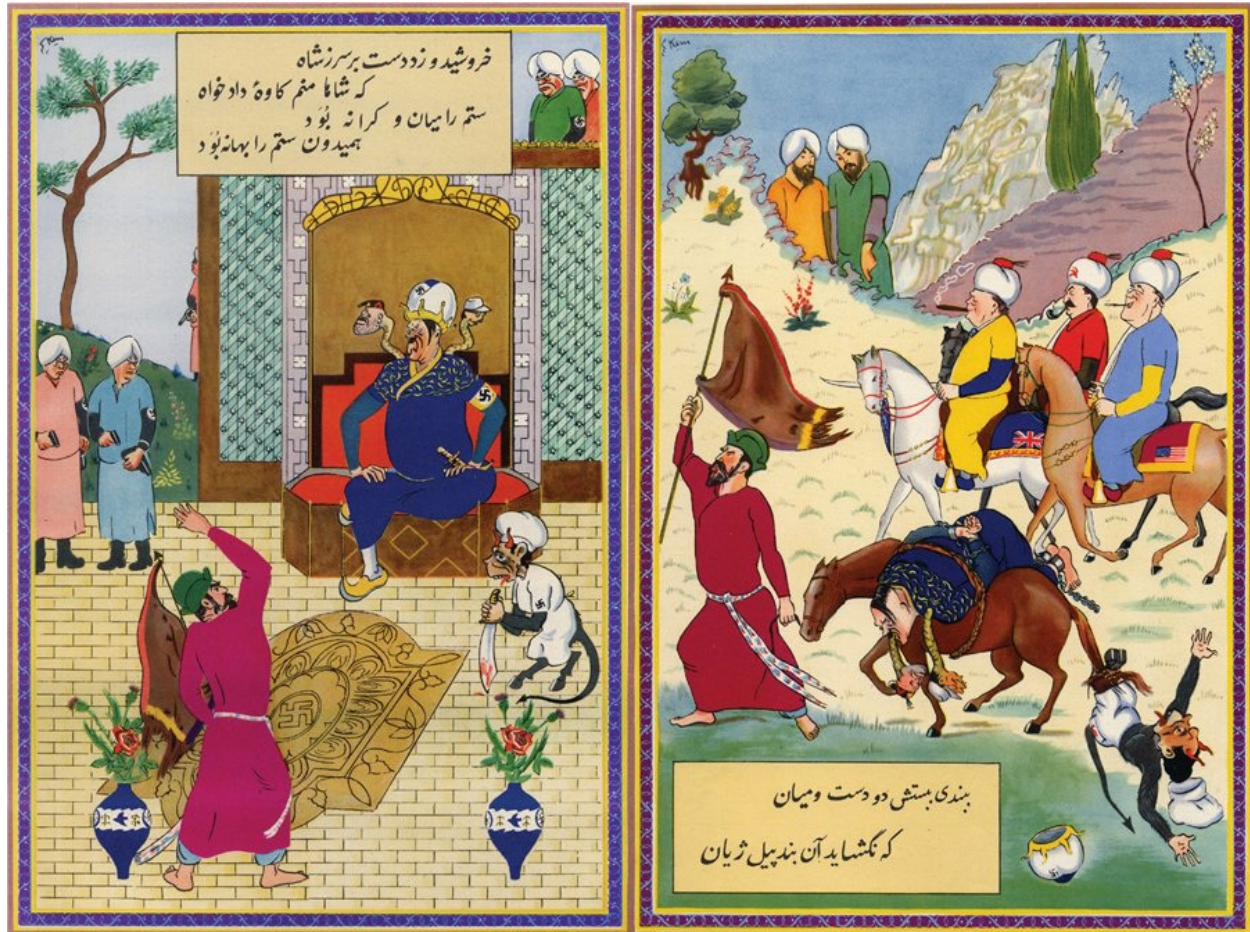 Kem
خروشید و زد دست بر سر ز شاه
که شاها منم کاوهٔ دادخواه
ستم را میان و کرانه بُوَد
همیدون ستم را بهانه بُوَد
Kem
ببندی ببستش دو دست و میان
که نگشاید آن بند پیل ژیان